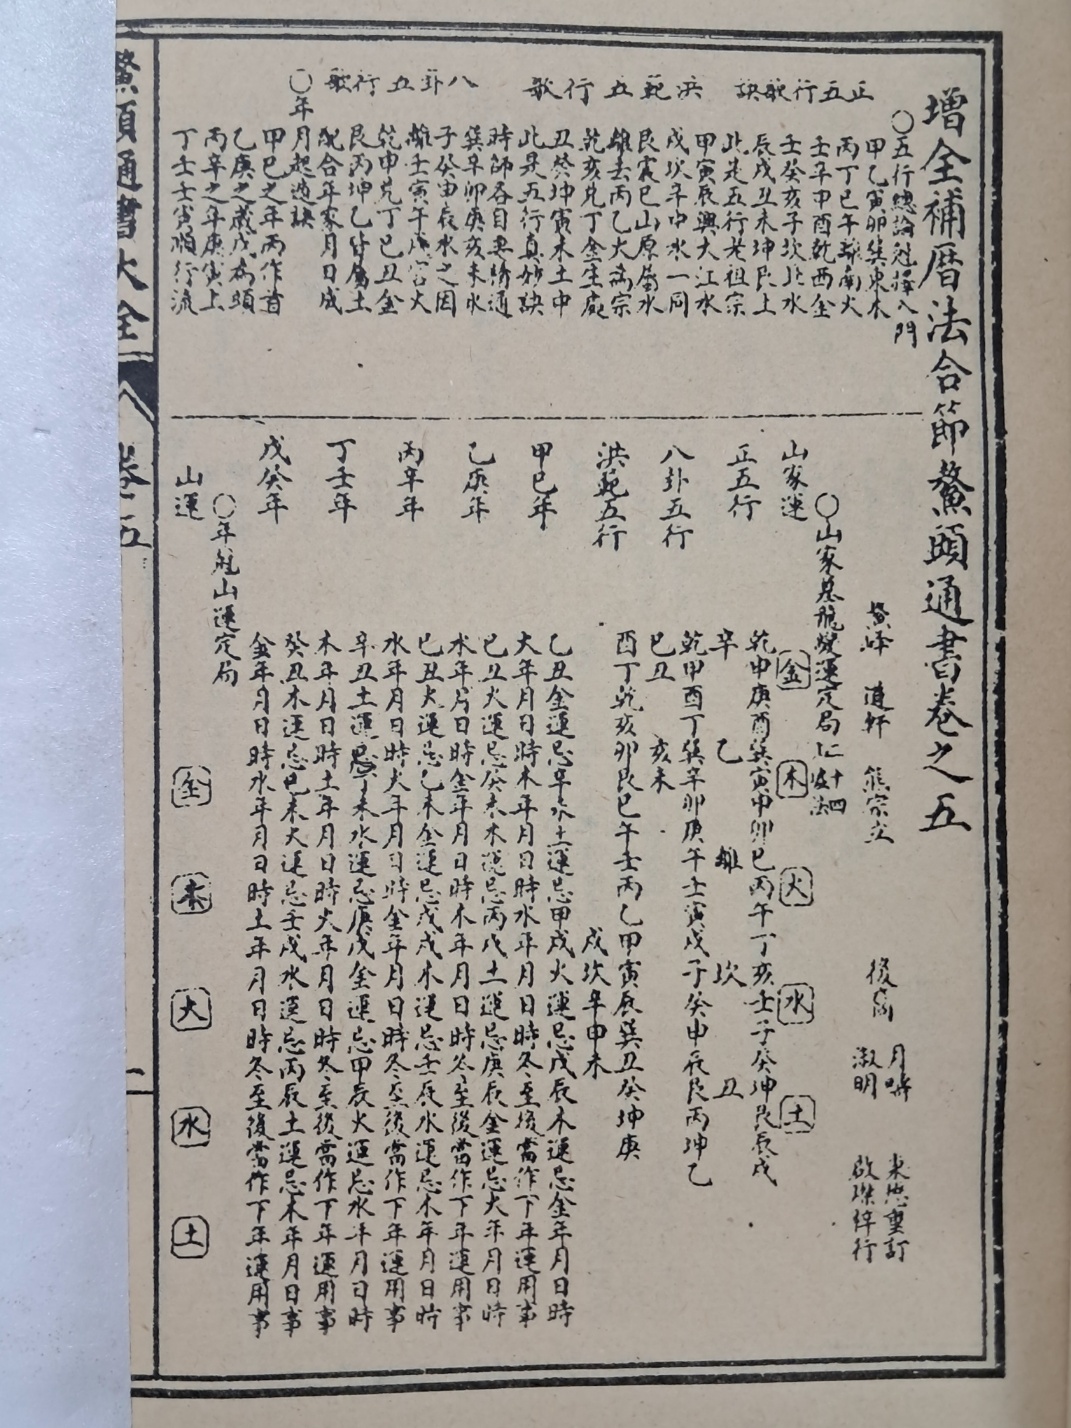 增全補曆法合節鰲頭通書卷之五
鰲峰 道軒 熊宗立 後裔 月疇 東㤗重訂
淑明 啟燦梓行
正五行歌訣
洪範五行歌
八卦五行歌
○五行總論尅擇入門
甲乙寅卯巽東木
丙丁巳午離南火
壬辛申酉乾西金
壬癸亥子坎北水
辰戌丑未坤艮上
此是五行老祖宗
甲寅辰巽大江水
戌坎辛申水一同
艮震巳山原屬木
離壬丙乙火為宗
乾亥兌丁金生處
丑癸坤寅未土中
此是五行真妙訣
時師各自要精通
巽辛卯庚亥未木
子癸申辰水之因
離壬寅午戌宮火
乾申兌丁巳丑金
艮丙坤乙皆屬土
配合年家月日成
○年月起遁訣
甲巳之年丙作首
乙庚之歲戊為頭
丙辛之年庚寅上
丁壬壬寅順行流
○山家墓龍變運定局 十四
山家運 金 木 火 水 土
正五行 乾申庚酉巽寅甲卯巳丙午丁亥壬子癸坤艮辰戌
辛 乙 離 坎 丑
八卦五行 乾甲酉丁巽辛卯庚午壬寅戌子癸申辰艮丙坤乙
巳丑 亥未
洪範五行 酉丁乾亥卯艮巳午壬丙乙甲寅辰巽丑癸坤庚
戌坎辛申未
甲巳年 乙丑金運忌辛未土運忌甲戌火運忌戊辰木運忌金年月日時
火年月日時木年月日時水年月日時冬至後當作下年運用事
乙庚年 巳丑火運忌癸未木運忌丙戌土運忌庚辰金運忌火年月日時
水年月日時金年月日時木年月日時冬至後當作下年運用事
丙辛年 巳丑火運忌乙未金運忌戊戌木運忌壬辰水運忌木年月日時
水年月日時火年月日時金年月日時冬至後當作下年運用事
丁壬年 辛丑土運忌丁未水運忌庚戌金運忌甲辰火運忌水年月日時
木年月日時土年月日時火年月日時冬至後當作下年運用事
戊癸年 癸丑木運忌巳未火運忌壬戌水運忌丙辰土運忌木年月日事
金年月日時水年月日時土年月日時冬至後當作下年運用事
○年尅山運定局
山運 金 木 火 水 土
鰲頭通書大全 卷五 一